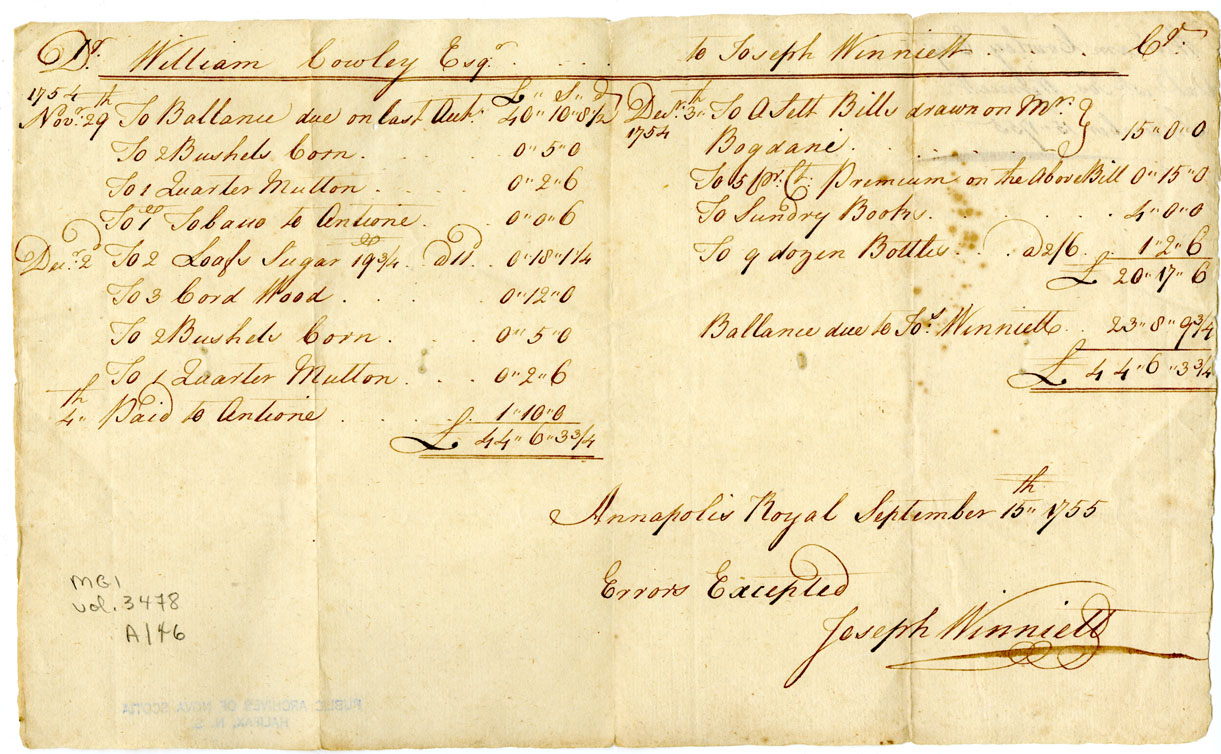 Dr. William Cowley Esqr. . . . . to Joseph Winniett . . . . Cr.
1754
£ " S " d
Novr. 29th To Ballance due on last Acct. 40 " 10 " 8 1/2
To 2 Bushels Corn . . . . 0 " 5 " 0
To 1 Quarter Mutton . . . . 0 " 2 " 6
To 1 lb Tobaco to Antione . . . 0 " 0 " 6
Decr. 2d To 2 Loafs Sugar 19 3/4 lb a 11d. 0 " 18 " 1 1/4
To 3 Cord Wood . . . . 0 " 12 " 0
To 2 Bushels Corn . . . . 0 " 5 " 0
To 1 Quarter Mutton . . . 0 " 2 " 6
4th " Paid to Antione . . . . 1 " 10 " 0
£ 44 " 6 " 3 3/4
Decr. 3th To A Sett Bills drawn on Mr. }
1754
Bogdani . . . . 15 " 0 " 0
To 5 pr. Ct. Premium on the Above Bill 0 " 15 " 0
To Sundry Books . . . . . 4 " 0 " 0
To 9 dozen Bottles . . . a 2/6 . . 1 " 2 " 6
£ 20 " 17 " 6
Ballance due to Jos. Winniett . . 23 " 8 " 9 3/4
£ 44 " 6 " 3 3/4
Annapolis Royal September 15th " 1755
Errors Excepted
Joseph Winniett
MG1
vol. 3478
A/46
PUBLIC ARCHIVES OF NOVA SCOTIA
HALIFAX, N. S.